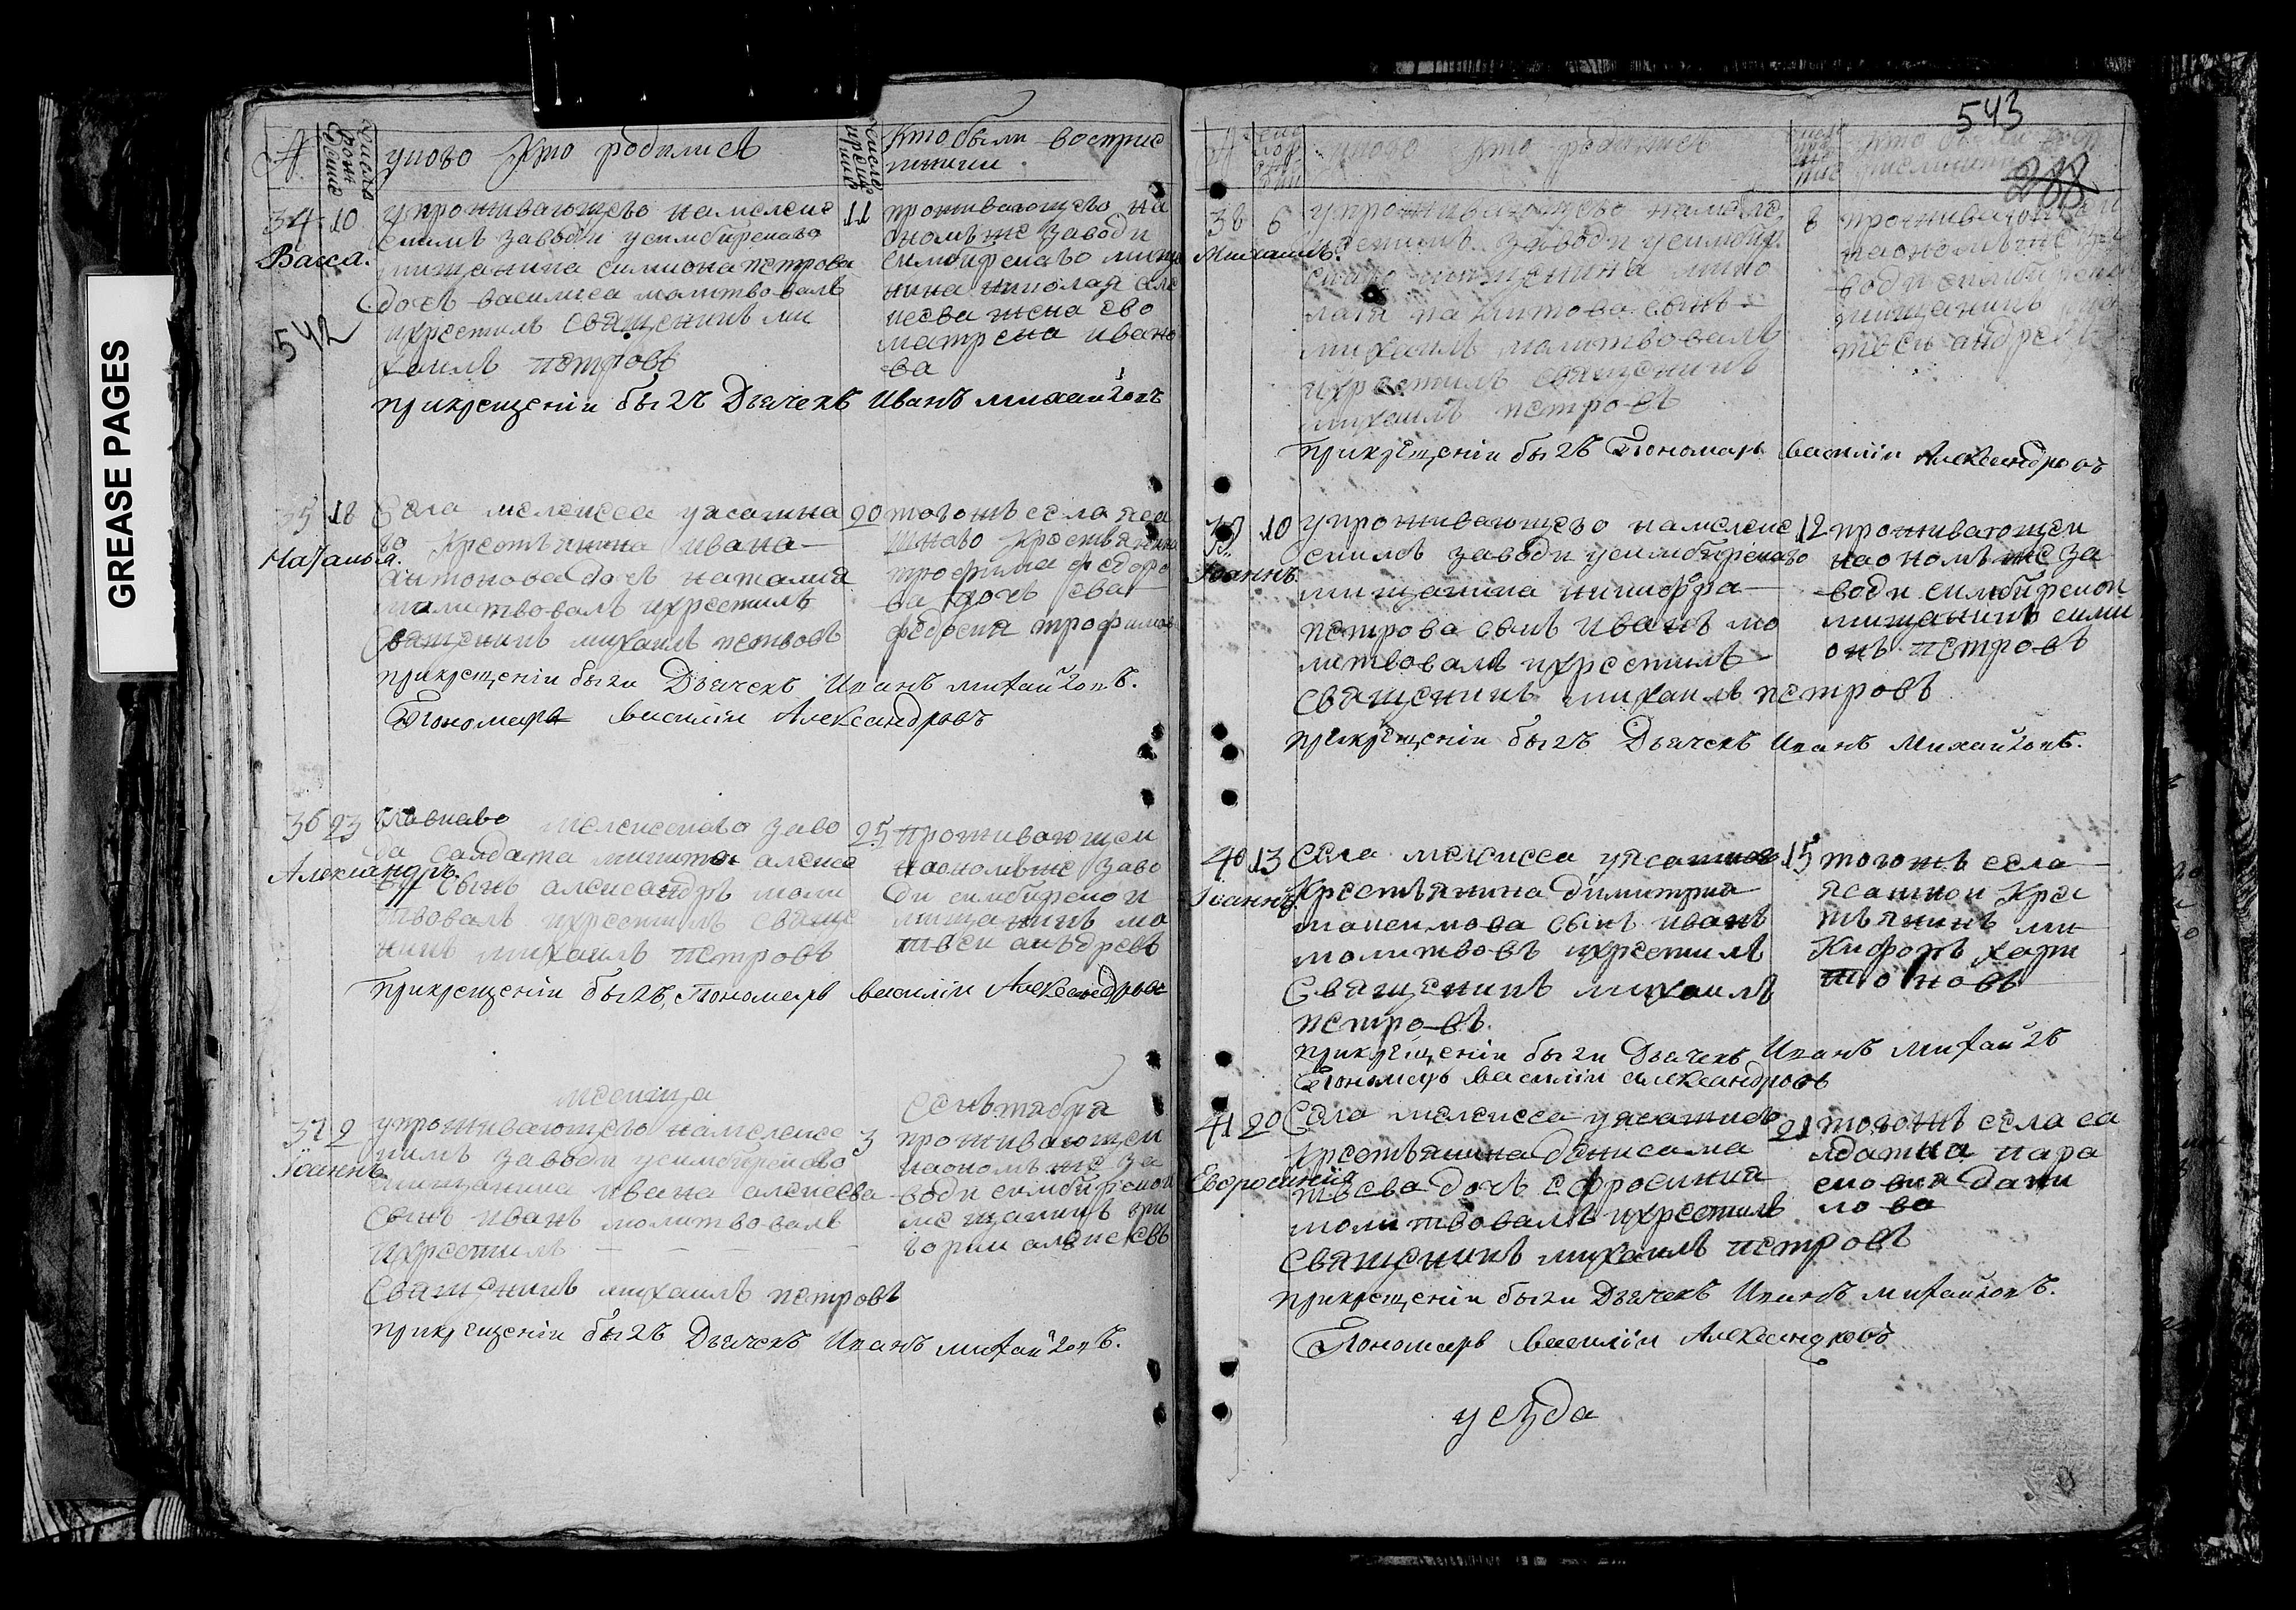 GREASE PAGES
№
число рождение
у ково кто родились
число крещение
кто были восприс
мники
34 10
Васса.
упроживающево намелекес
скимъ заводи усимбирскаго
мищанина симиона петрова
дочь василиса молитвовалъ
икрестилъ священикъ ми
хаилъ петровъ
11
проживающево на
ономъже заводи
симбирскаго мища
нина николая але
ксева жена ево
матрена ивано
ва
прикрещеніи былъ Дьячекъ Иванъ михайловъ
542
35 18
Наталья.
Села мелекеса уясашна
го крестьянина ивана
антонова дочь наталия
молитвовалъ икрестилъ
Священикъ михаилъ петровъ
20
тогожъ села яса
шнаво крестьянина
трофима федоро
ва дочь ева
федосия трофимов
прикрещеніи были Дьячекъ Иванъ михайловъ.
Пономарь василіи Александровъ
36 23
Александръ.
мелекескаго заво
да салдата микиты алексе
ва сынъ александръ моли
твовалъ икрестилъ свяще
никъ михаилъ петровъ
25
проживающеи
наономъже заво
ди симбирскои
мищанинъ ма
твеи анъдревъ
прикрещеніи былъ Пономарь василіи Александровъ
месяца Сенътября
37 2
Іоаннъ
упроживающево намелекес
кимъ заводи усимбирскаго
мищанина ивана алексева
Сынъ иванъ молитвовалъ
икрестилъ
Священикъ михаилъ петровъ
3
проживающеи
наономъже за
води симбирскои
мещанинъ гри
гории алексевъ
прикрещеніи былъ Дьячекъ Иванъ михайловъ.
543
288
у ково кто родились
38 6
Михаилъ.
упроживающево намеле
кескимъ заводи усимбир
скаго мищанина
сынъ
михаилъ молитвовалъ
икрестилъ священикъ
михаилъ петровъ
8
проживающеи
наономъже за
води симбирскои
мищанинъ ма
твеи андревъ
прикрещеніи былъ Пономарь василіи Александровъ
39 10
Іоаннъ.
упроживающево намелекес
скимъ заводи усимбирскаго
мищанина никифора
петрова сынъ иванъ мо
литвовалъ икрестилъ
священикъ михаилъ петровъ
12
проживающеи
наономъже за
води симбирскои
мищанинъ сими
онъ петровъ
прикрещеніи былъ Дьячекъ Иванъ Михайловъ.
40 13
Іоаннъ.
Села мелекесса уясашнова
крестьянина димитрия
максимова сынъ иванъ
молитвовъ икрестилъ
Священикъ михаилъ
петровъ.
15
тогожъ села
ясашнои кре
тьянинъ ми
кифоръ хари
тоновъ
прикрещеніи были Дьячекъ Иванъ михайлъ
Пономарь василіи александровъ
41 20
Евфросинія
Села мелекесса уясашнова
крестьянина дениса ма
твева дочь ефросиния
молитвовалъ икрестилъ
Священикъ михаилъ петровъ
21
тогожъ села са
лдатка пара
сковия дани
лова
прикрещеніи были Дьячекъ Иванъ михайловъ.
Пономарь василіи Александровъ
уезда